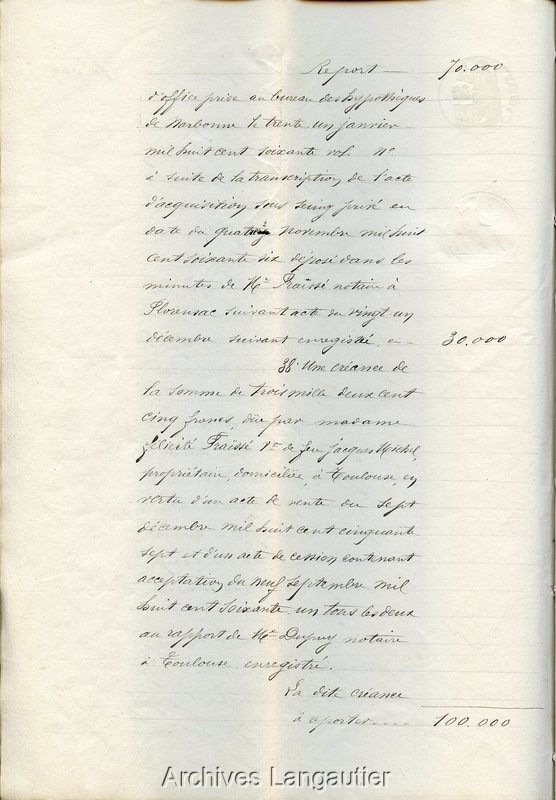 Report — 70.000
d'office prise au bureau des hypothèques
de Narbonne le trente un janvier
mil huit cent soixante vol. N°
à suite de la transcription de l'acte
d'acquisition sous seing privé en
date du quatre Novembre mil huit
cent soixante six déposé dans les
minutes de Me Fraïssé notaire à
Florensac suivant acte du vingt un
décembre suivant enregistré, ci — 30.000
38° Une créance de
la somme de trois mille deux cent
cinq francs, dûe par madame
félicité Fraïssé Vve de feu Jacques Michel
propriétaire, domiciliée, à Toulouse, en
vertu d'un acte de vente du sept
décembre mil huit cent cinquante
sept et d'un acte de cession contenant
acceptation du neuf septembre mil
huit cent soixante un tous les deux
au rapport de Me Dupuy notaire
à Toulouse enregistré.
La dite créance
à reporter — 100.000
Archives Langautier